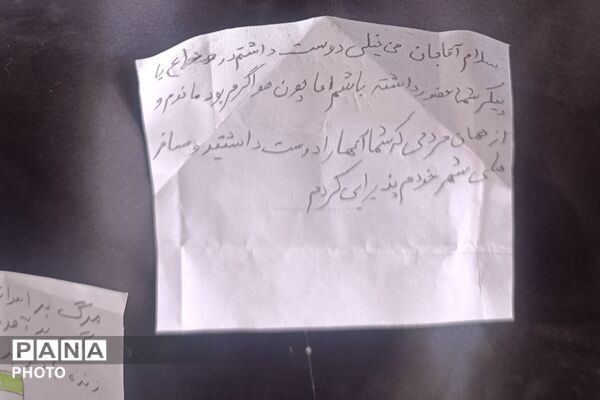 سلام آقاجان من خیلی دوست داشتم در وداع با
پیکر شما حضور داشته باشم اما چون هوا گرم بود ماندم و
از همان مردمی که شما آنها را دوست داشتید و مسافر
های شهر خودم پذیرایی کردم
مرگ بر
PANA
PHOTO